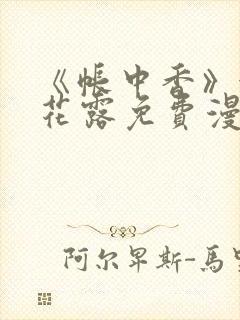 《帐中香》
花露免费漫
阿尔卑斯-馬